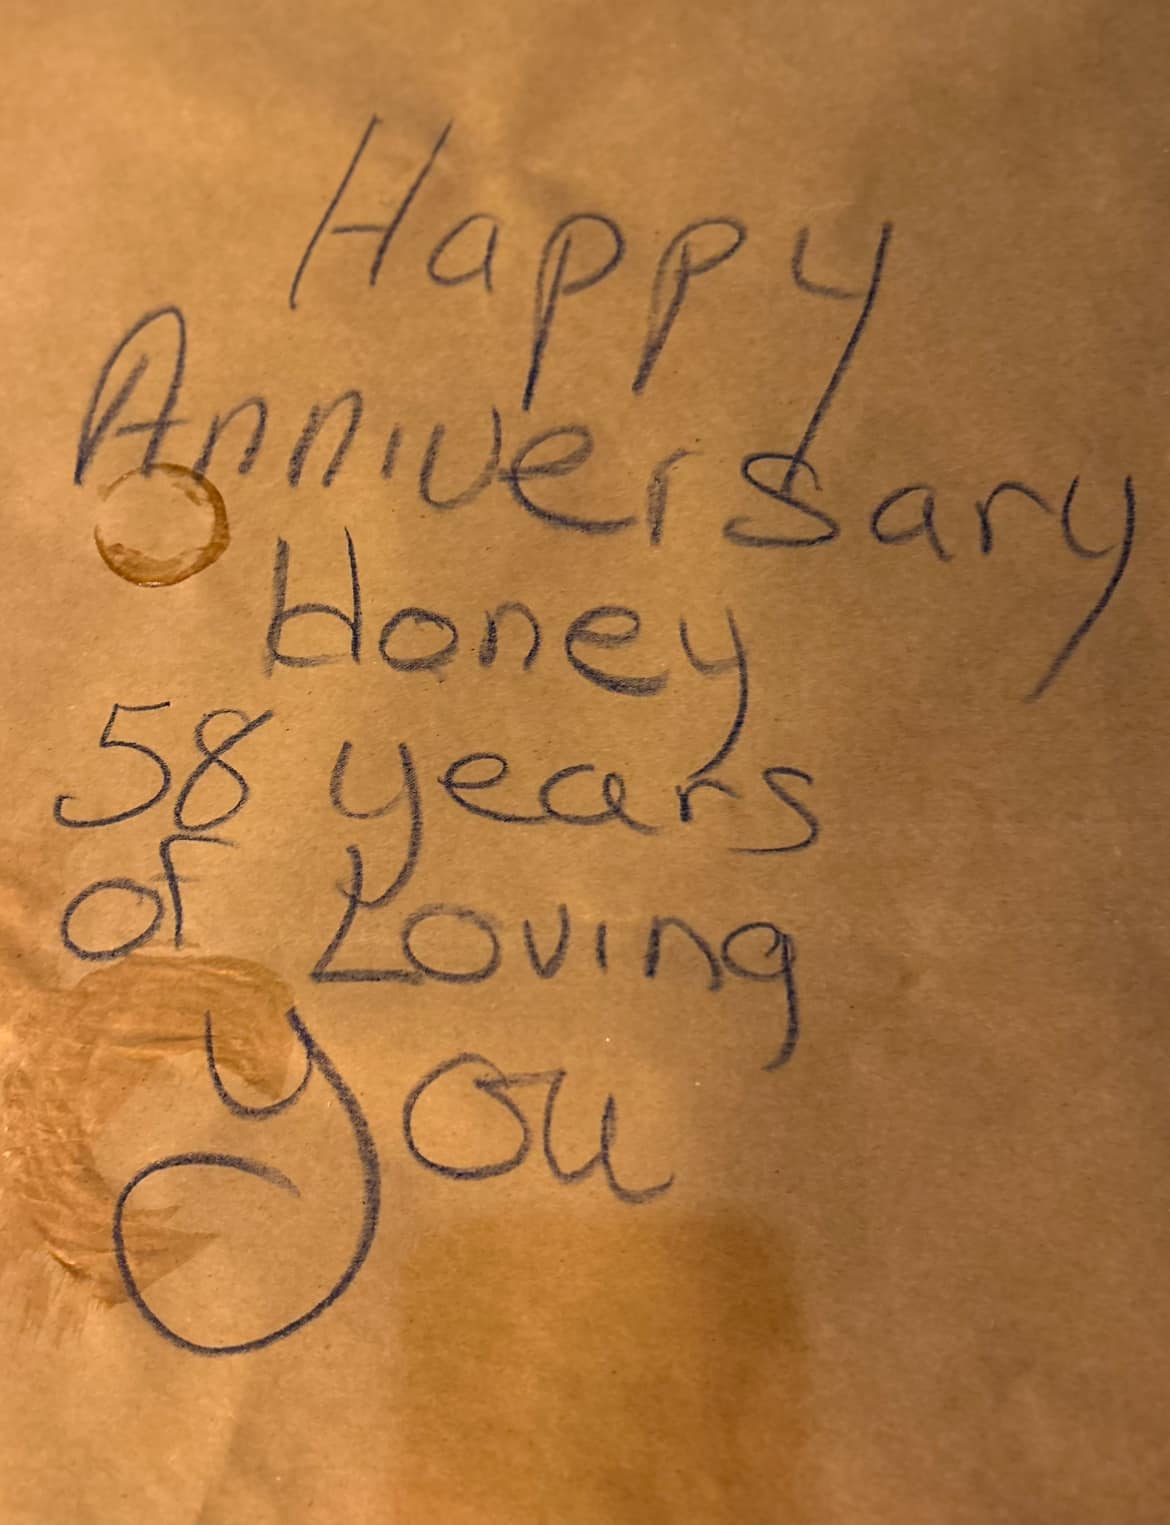 Happy
Anniversary
Honey
58 years
of Loving
you